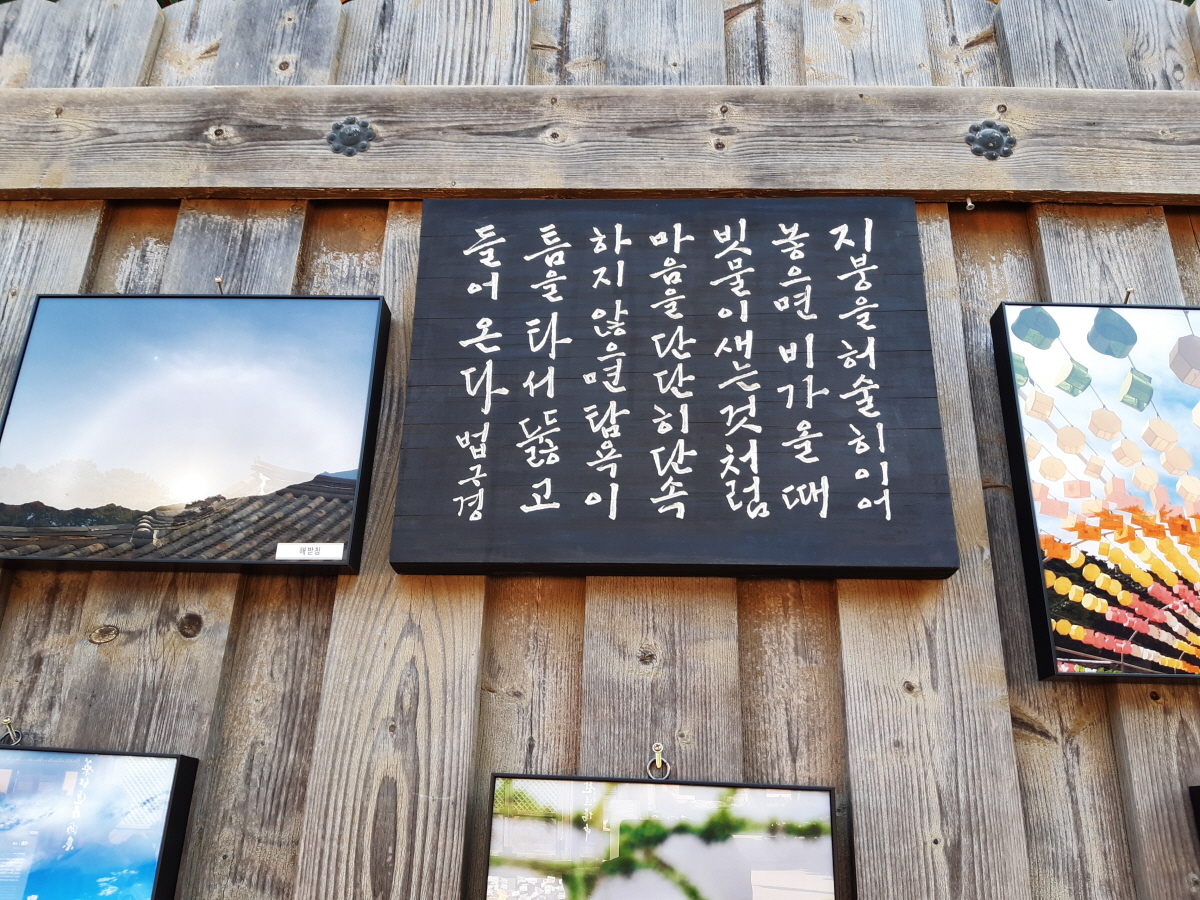 지붕을 허술히 이어
놓으면 비가 올 때
빗물이 새는것처럼
마음을 단단히 단속
하지 않으면 탐욕이
틈을 타서 뚫고
들어 온다 법구경
해 받침